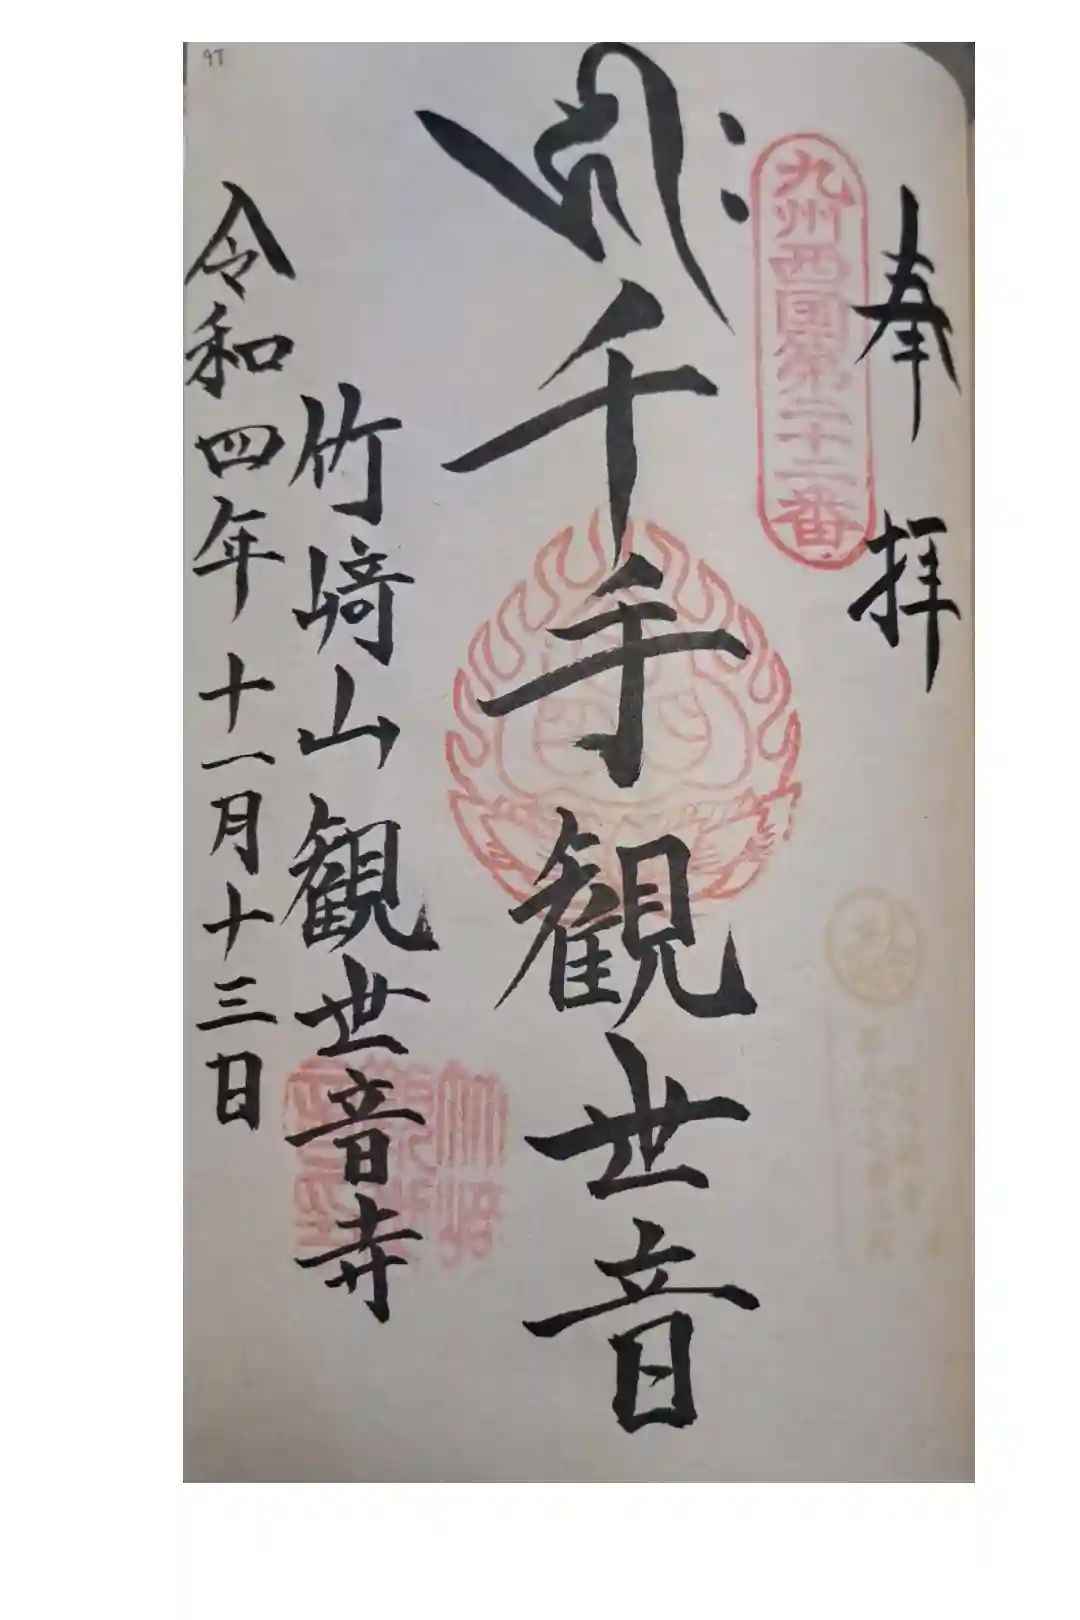 奉拝
九州西國第二十二番
千手観世音
竹﨑山観世音寺
令和四年十一月十三日
97